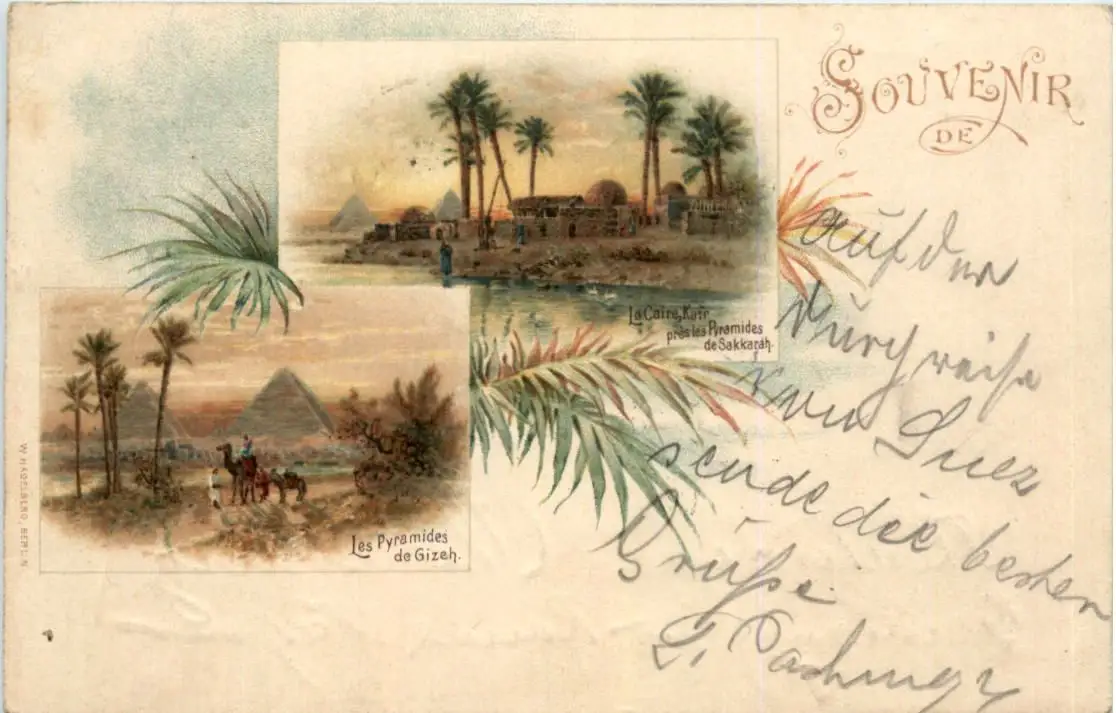 SOUVENIR
DE
La Caire, Kair
près les Pyramides
de Sakkarah.
Les Pyramides
de Gizeh.
W. HAGELBERG, BERLIN
auf der
Durchreise
von Suez
sende die besten
Grüße